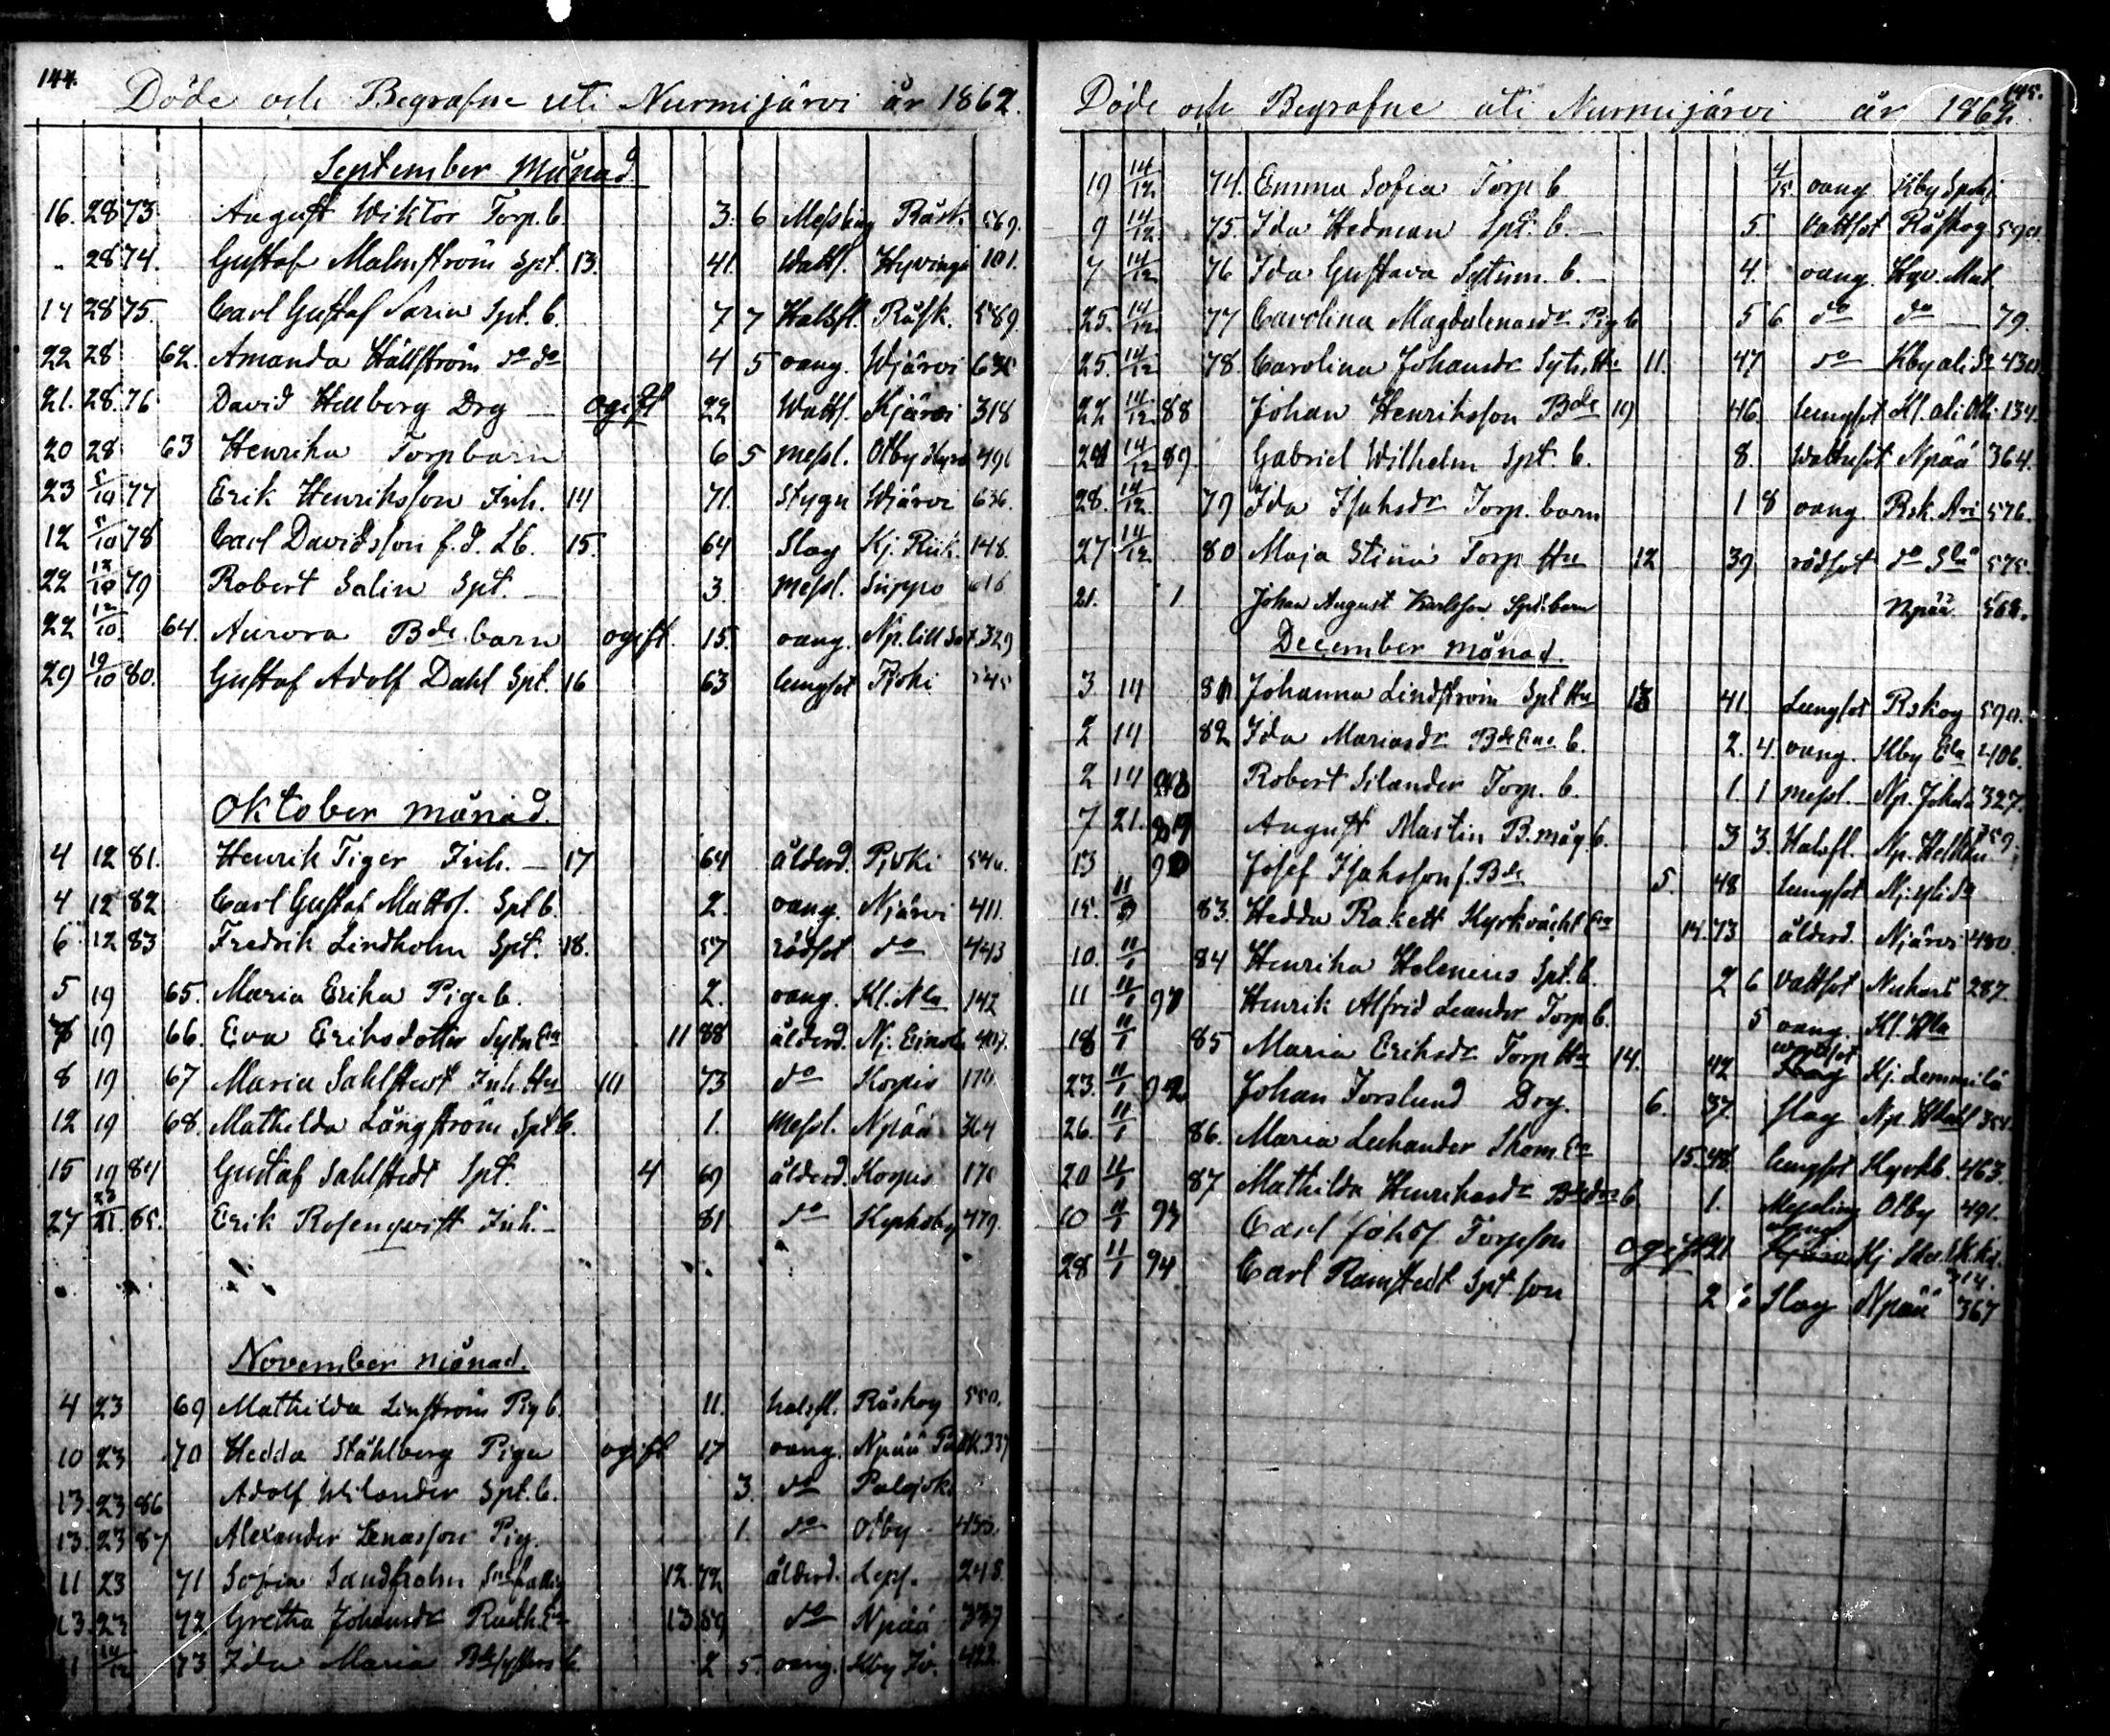 144.
Döde och Begrafne uti Nurmijärvi år 1862.
September Månad
16. 28 73 August Wiktor Torp. b. 3. 6 Messling Råsk. 569.
" 28 74. Gustaf Malmström Spt. 13. 41. Watts. Hyvinge 101.
14 28 75. Carl Gustaf Sarin Spt. b. 7 7 Halsfl. Råsk. 589.
22 28 62. Amanda Hällström do do 4 5 oang. Wjärvi
21. 28. 76 David Hellberg Drg — ogift 22 Watts. Njärvi 318
20 28 63 Henrika Torpbarn 6 5 Messl. Olby
23 5/10 77 Erik Henriksson Inh. 14 71. Stygn Wjärvi 636.
12 5/10 78 Carl Davidsson f.d. Lb. 15. 64 Slag Kj. 148.
22 12/10 79 Robert Salin Spt. — 3. Messl. Suppo 616
22 12/10 64. Aurora Bde barn ogift. 15. oang. Np. lill 329
29 19/10 80. Gustaf Adolf Dahl Spt. 16 63 lungsot
Oktober månad.
4 12 81. Henrik Tiger Inh. — 17 64 ålderd. Pjoki 546.
4 12 82 Carl Gustaf Matts. Spt b. 2. oang. Njärvi 411.
6 12 83 Fredrik Lindholm Spt. 18. 57 rödsot do 443
5 19 65. Maria Erika Pige b. 2. oang. Kl. Nla 142
7 19 66. Eva Eriksdotter Sytn Ea 11 88 ålderd. Nj. 407.
8 19 67 Maria Sahlstedt Inh. Hu 10 73 do Korpis 170
12 19 68. Mathilda Långström Spt b. 1. Messl. Npää 364
15 19 84 Gustaf Sahlstedt Spt. 4 69 ålderd. Korpis 170
27 23/11. 85. Erik Rosenqvist Inh. — 81 do Kyrkoby 479.
November månad.
4 23 69 Mathilda Linström Pig b. 11. halsfl. Råskog 550.
10 23 70 Hedda Ståhlberg Piga ogift 17 oang. Npää
13. 23 86 Adolf Wilander Spt. b. 3. do Palojoki
13. 23 87 Alexander Lenasson Pig. 1. do Olby 455.
11 23 71 Sofia Sandholm 12. 72 ålderd. Leps. 248.
13. 23 72 Gretha Johansdr 13. 59 do Npää 337
11 14/12 73 Ida Maria Bde systers b. 2 5. oang. Kby Jo. 422.
145.
Döde och Begrafne uti Nurmijärvi år 1862.
19 14/12 74. Emma Sofia Torp b. oang. Kby
9 14/12 75. Ida Hedman Spt. b. — 5. Vattsot Råskog 590.
7 14/12 76 Ida Gustava Sytnn. b. — 4. oang. Hyv. Mat.
25. 14/12 77 Carolina Magdalenasdr Pig b 5 6 do do 79.
25. 14/12 78. Carolina Johansdr Sytn. Hu 11. 47 do Kby 430.
22 14/12 88 Johan Henriksson Bde 19 46. lungsot Kl. ali Olli 134.
14/12 89. Gabriel Wilhelm Spt. b. 8. Wattusot Npää 364.
28. 14/12 79 Ida Isaksdr Torp. barn 1 8 oang. Rsk. Ari 576.
27 14/12 80 Maja Stina Torp Hu 12 39 rödsot do 575.
21. 1. Johan August Karlsson Spt. barn Npää 362.
December månad.
3 14 81 Johanna Lindström Spt Hu 13 41. Lungsot Rskog 590.
2 14 82 Ida Mariasdr b. 2. 4. oang. Kby 406.
2 14 Robert Silander Torp. b. 1. 1 messl. Np. 327.
7 21. 89 August Martin B. måg. b. 3 3. Halsfl. Np.
13 90 Josef Isaksson f. Bde 5. 48 lungsot
15. 83. Hedda Rakett Kyrkväckt Ea 14. 73 ålderd. Njärvi 480.
10. 11/1 84 Henrika Helenius Spt. b. 2 6 Vattsot Nukari 287.
11 11/1 91 Henrik Alfrid Leander Torp b. 5 oang. Kl.
18 11/1 85 Maria Eriksdr Torp Hu 14. 42 Kj. Lemmilä
23. 11/1 92 Johan Forslund Drg. 6. 37. slag Np.
26. 11/1 86. Maria Lechander Skom. Ea 15. 48 lungsot Kyrkb. 463.
20 11/1 87 Mathilda Henrikasdr b 1. Messling Olby 491.
10 11/1 93 Carl Johss Torpson ogift 21
28 11/1 94 Carl Ramstedt Spt. son 2 6 Slag Npää 367